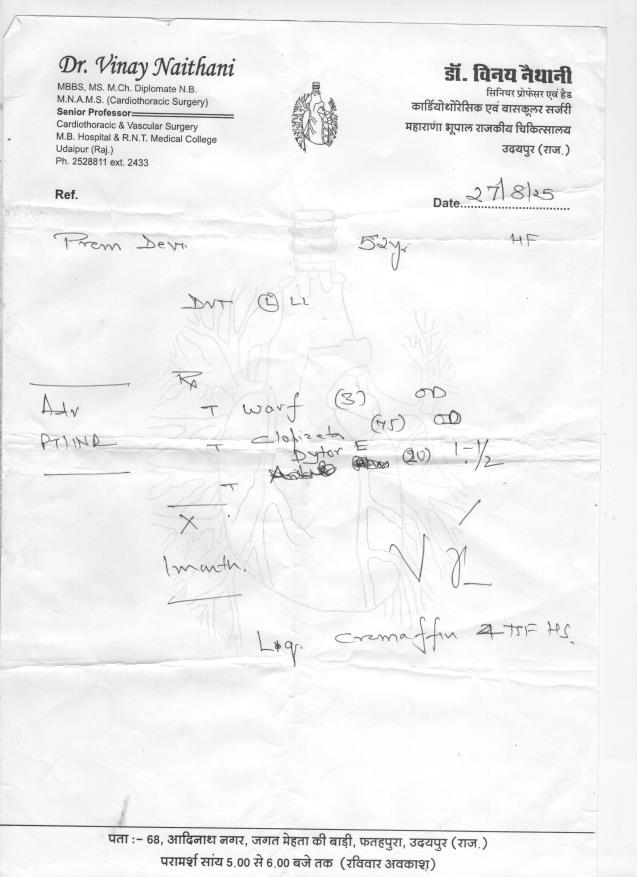 Dr. Vinay Naithani
MBBS, MS. M.Ch. Diplomate N.B.
M.N.A.M.S. (Cardiothoracic Surgery)
Senior Professor
Cardiothoracic & Vascular Surgery
M.B. Hospital & R.N.T. Medical College
Udaipur (Raj.)
Ph. 2528811 ext. 2433
डॉ. विनय नैथानी
सिनियर प्रोफेसर एवं हैड
कार्डियोथोरेसिक एवं वासकूलर सर्जरी
महाराणा भूपाल राजकीय चिकित्सालय
उदयपुर (राज.)
Ref.
Date 27/8/25
Prem Devi 52yr HF
DVT Ⓛ LL
Rx
Adv T Warf (3) OD
PT/INR T (75) OD
T Dytor E (20) 1-½
X
1 month.
Liq. Cremaffin 4 TSF HS.
पता :- 68, आदिनाथ नगर, जगत मेहता की बाड़ी, फतहपुरा, उदयपुर (राज.)
परामर्श सांय 5.00 से 6.00 बजे तक (रविवार अवकाश)